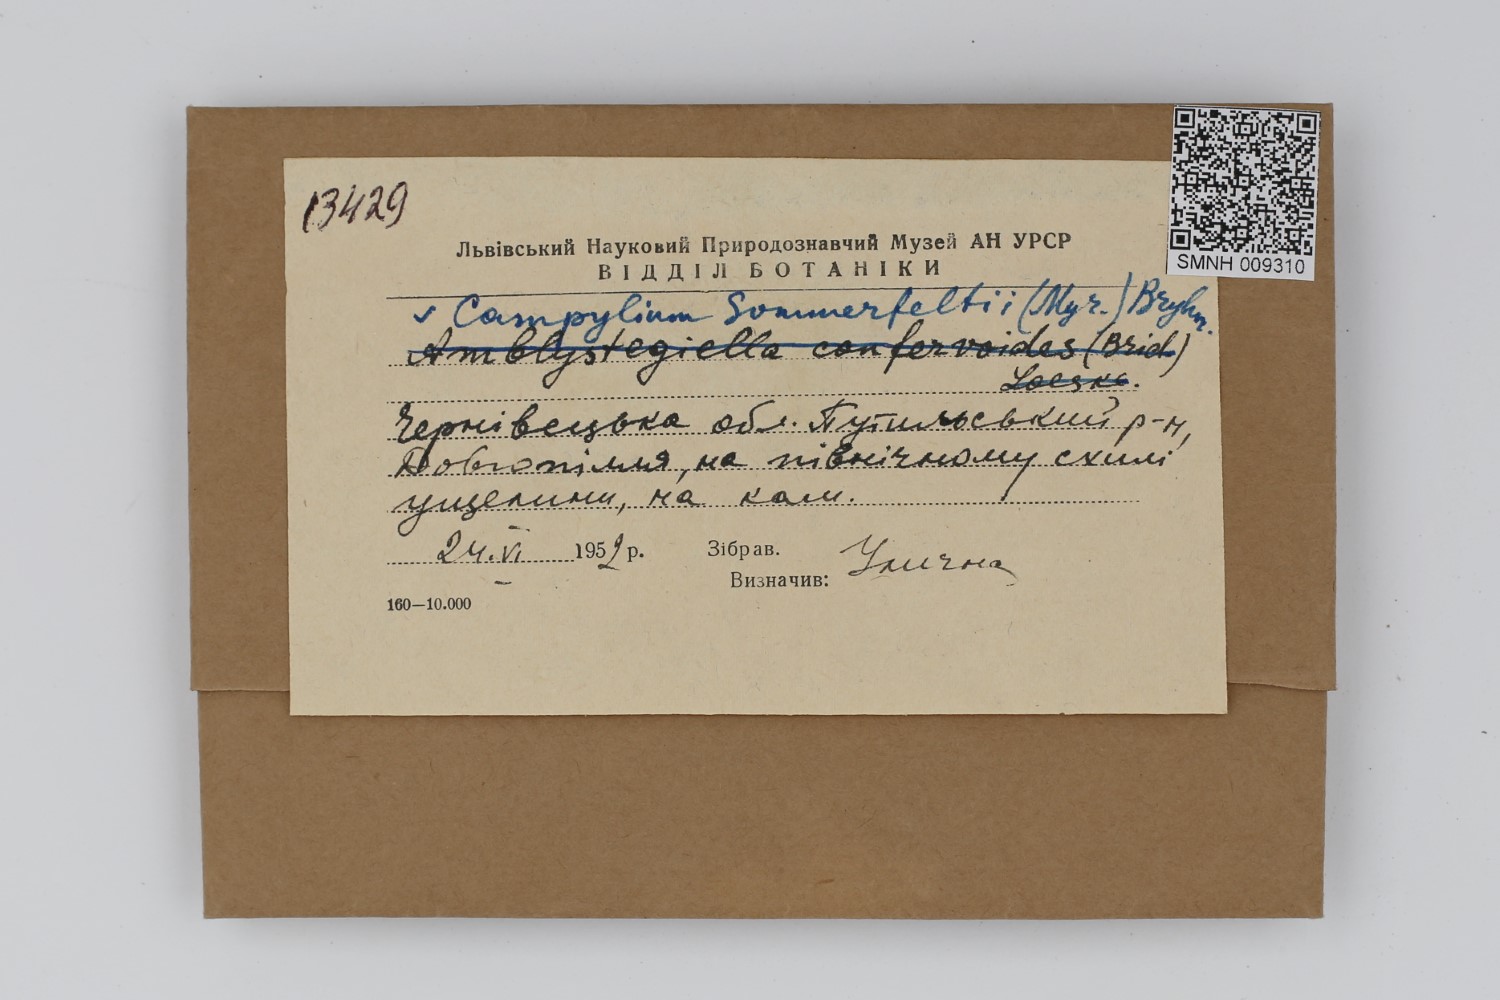 13429
SMNH 009310
Львівський Науковий Природознавчий Музей АН УРСР
ВІДДІЛ БОТАНІКИ
✓ Campylium Sommerfeltii (Myr.) Bryhn.
Amblystegiella confervoides (Brid.)
Loeske.
Чернівецька обл. Путильський р-н,
Довгопілля, на північному схилі
ущелини, на кам.
24.VI 1952 р. Зібрав.
Визначив: Улична
160—10.000